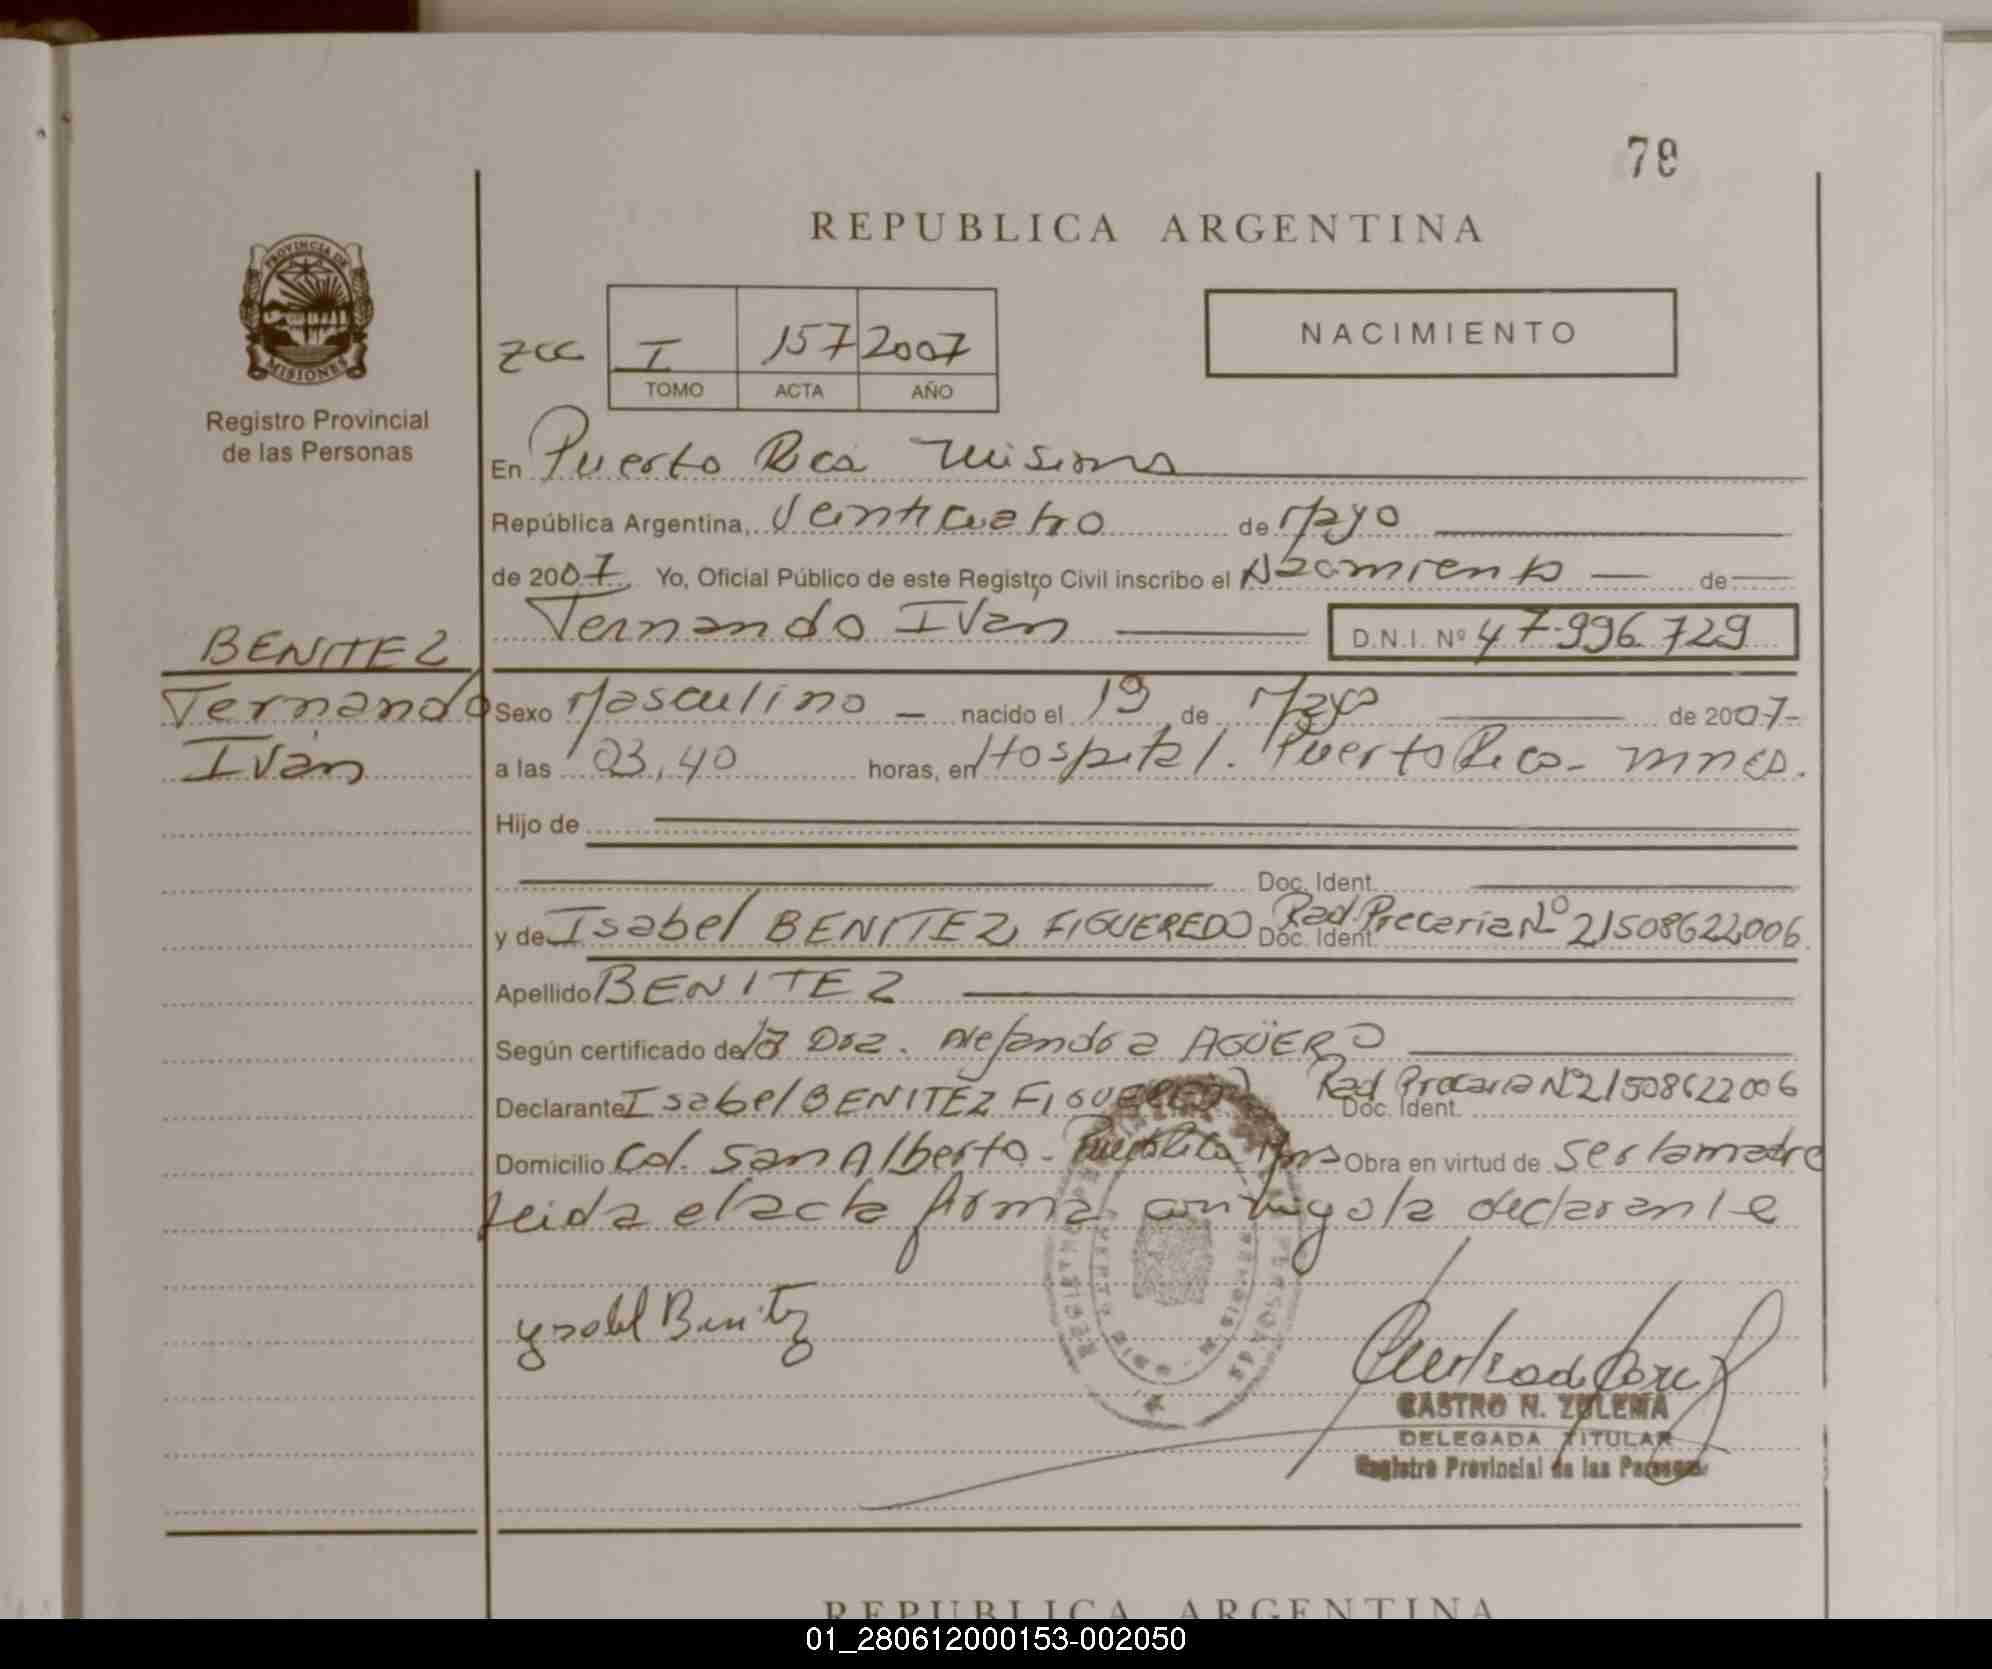 79
REPUBLICA ARGENTINA
PROVINCIA DE
MISIONES
Registro Provincial
de las Personas
NACIMIENTO
zcc I 157 2007
TOMO ACTA AÑO
En Puerto Rico Misiones
República Argentina, Veinticuatro de Mayo
de 2007 Yo, Oficial Público de este Registro Civil inscribo el Nacimiento — de
Fernando Iván D.N.I. Nº 47.996.729
BENITEZ
Fernando
Iván
Sexo Masculino — nacido el 19 de Mayo de 2007-
a las 03,40 horas, en Hospital. Puerto Rico - Mnes.
Hijo de
Doc. Ident.
y de Isabel BENITEZ FIGUEREDO Doc. Ident. Rad. Precaria Nº 21508622006
Apellido BENITEZ
Según certificado de la Dra. Alejandra AGÜERO
Declarante Isabel BENITEZ FIGUEREDO Doc. Ident. Rad Precaria Nº 21508622006
Domicilio Col. San Alberto - Puerto Rico Mnes Obra en virtud de ser la madre
leida el acta firma conmigo la declarante
ysabel Benitez
CASTRO N. ZULEMA
DELEGADA TITULAR
Registro Provincial de las Personas
REPUBLICA ARGENTINA
01_280612000153-002050